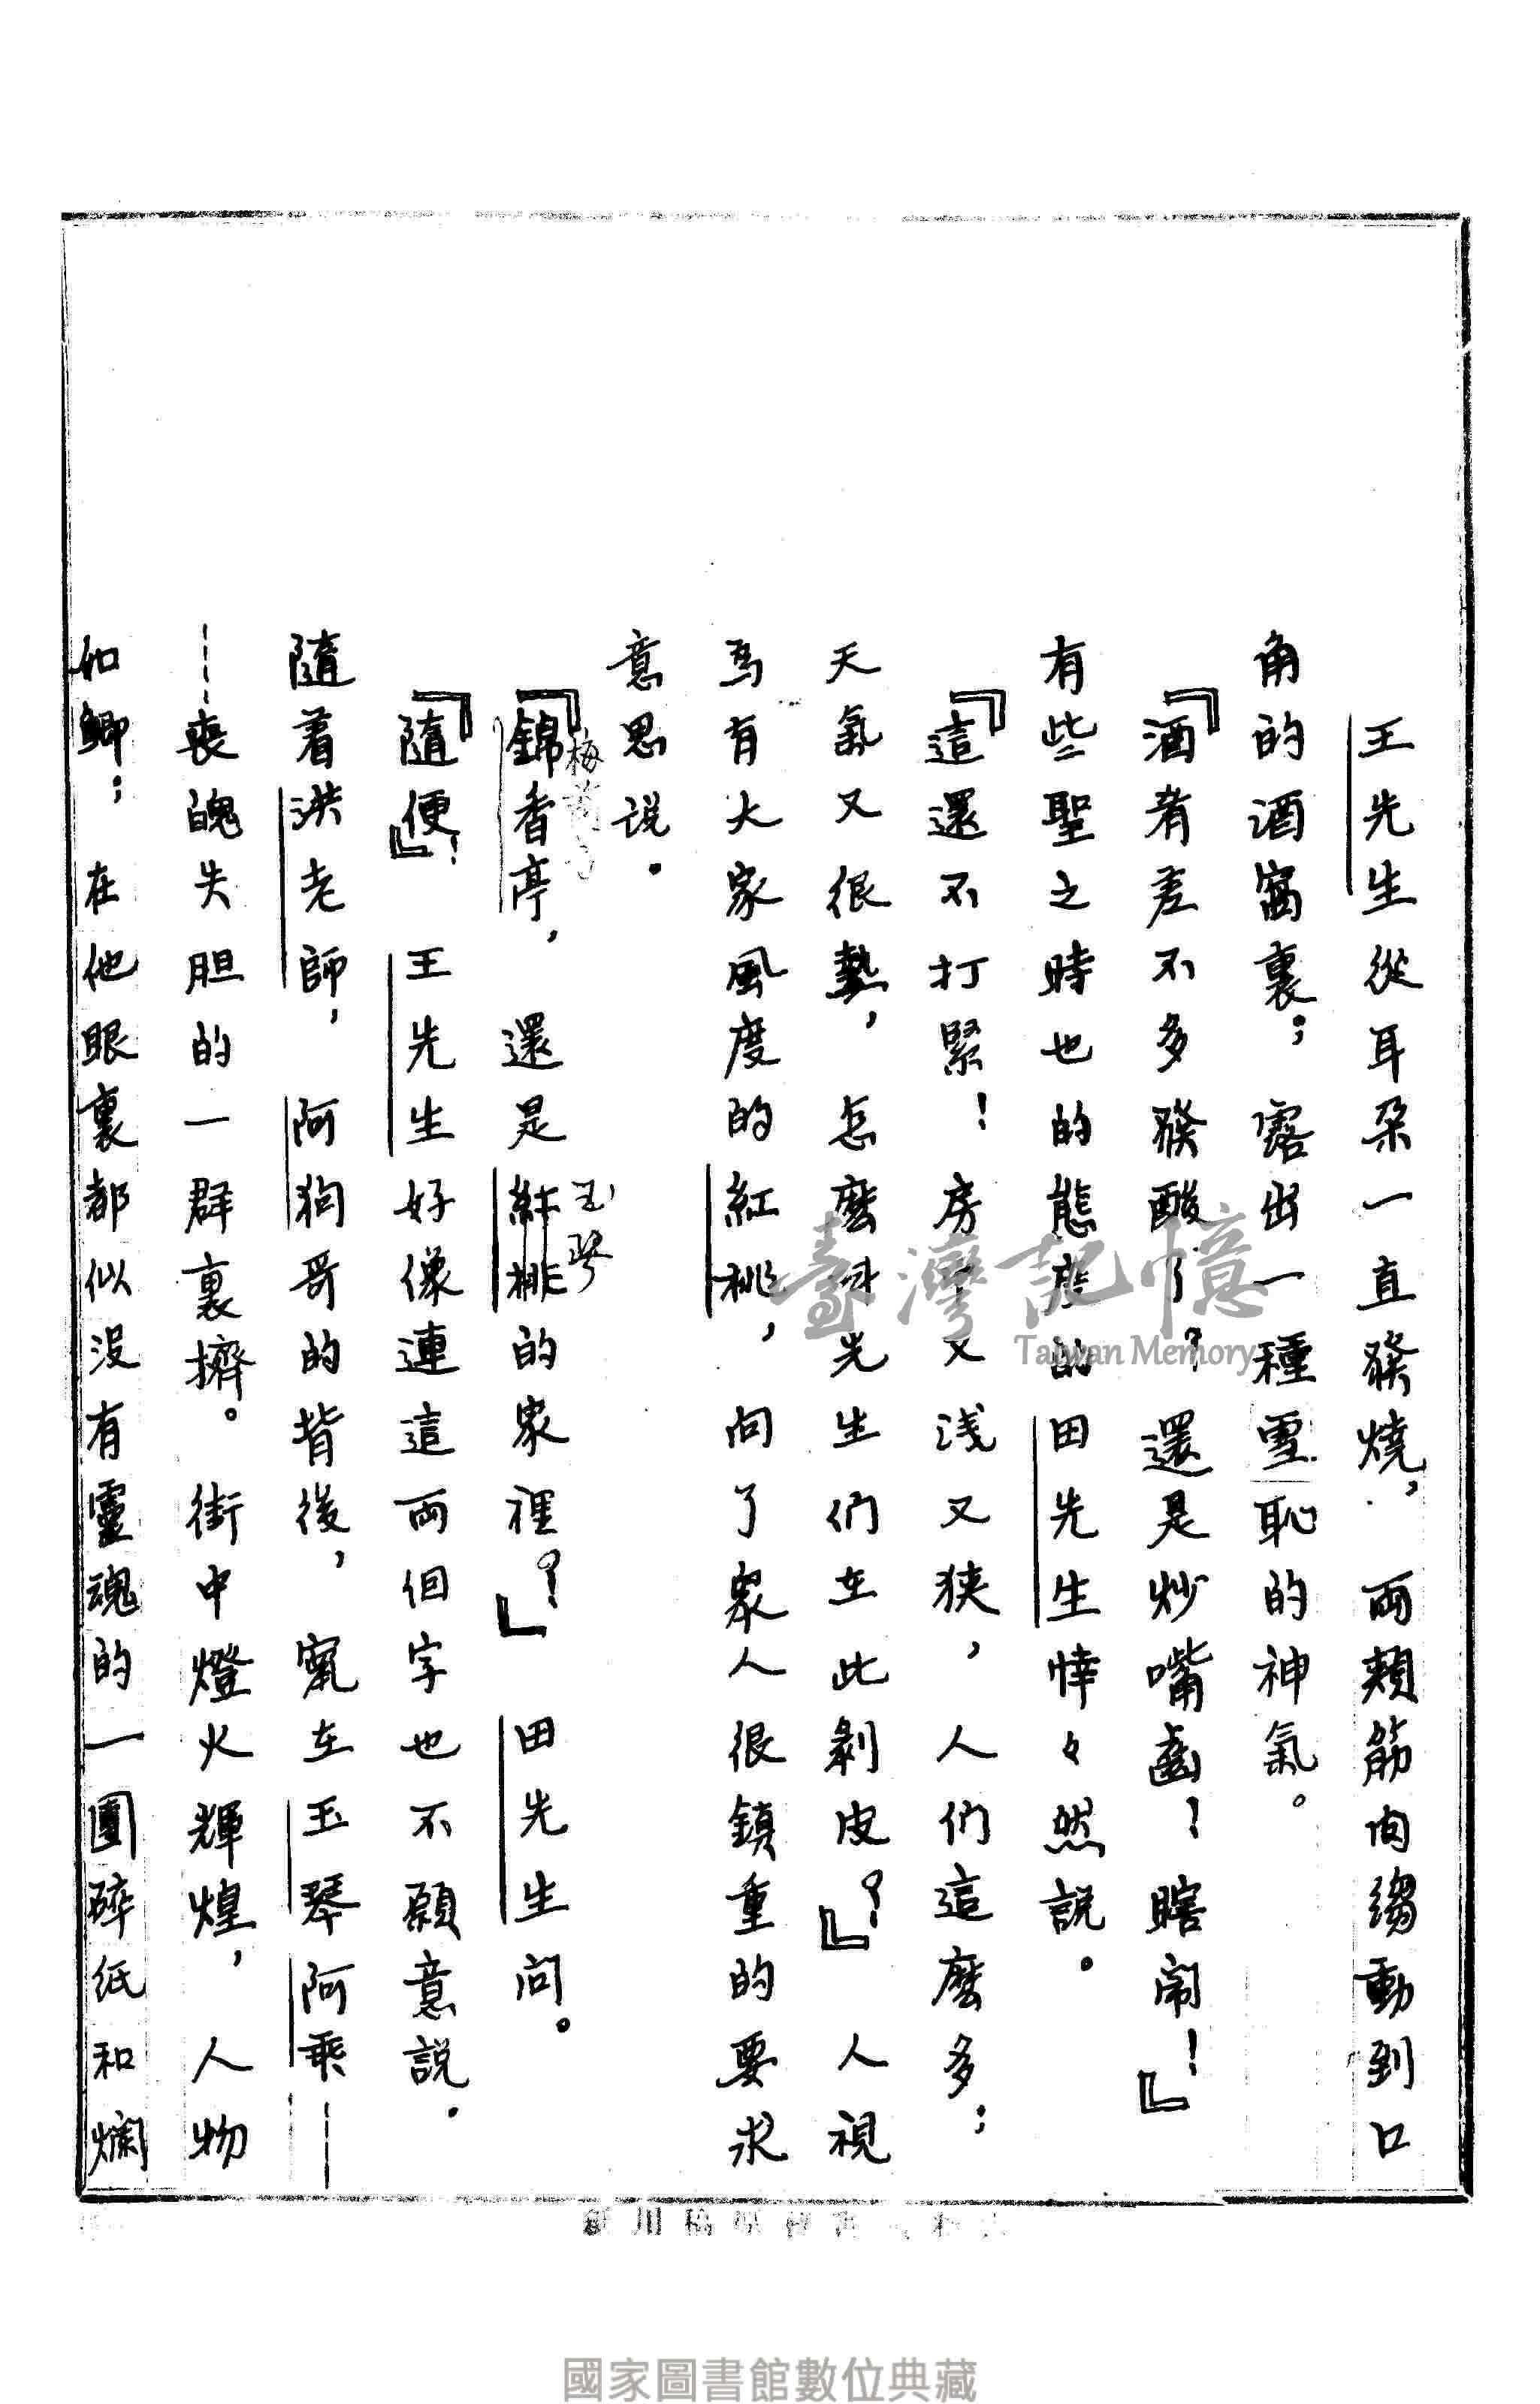 王先生從耳朵一直發燒，兩頰筋肉縐動到口
角的酒窩裏；露出一種雪恥的神氣。
『酒肴差不多發酸了？還是炒嘴齒！瞎鬧！』
有些聖之時也的態度的田先生悻々然説。
『這還不打緊！房中又浅又狹，人們這麼多；
天氣又很熱，怎麼叫先生們在此剝皮？』人視
爲有大家風度的紅桃，向了家人很鎮重的要求
意思说。
『錦香亭，還是紅桃的家裡？』田先生问。
梅
玉琴
『隨便！』王先生好像連這兩個字也不願意説。
隨着洪老師，阿狗哥的背後，竄在玉琴阿乘——
……喪魄失胆的一群裏擠。街中燈火輝煌，人物
如鲫；在他眼裏都似没有靈魂的一團碎紙和爛
臺灣記憶
Taiwan Memory
國家圖書館數位典藏